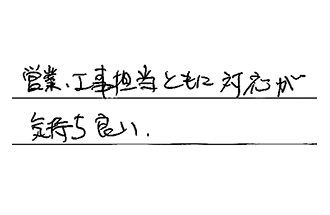 営業、工事担当ともに対応が
気持ち良い.